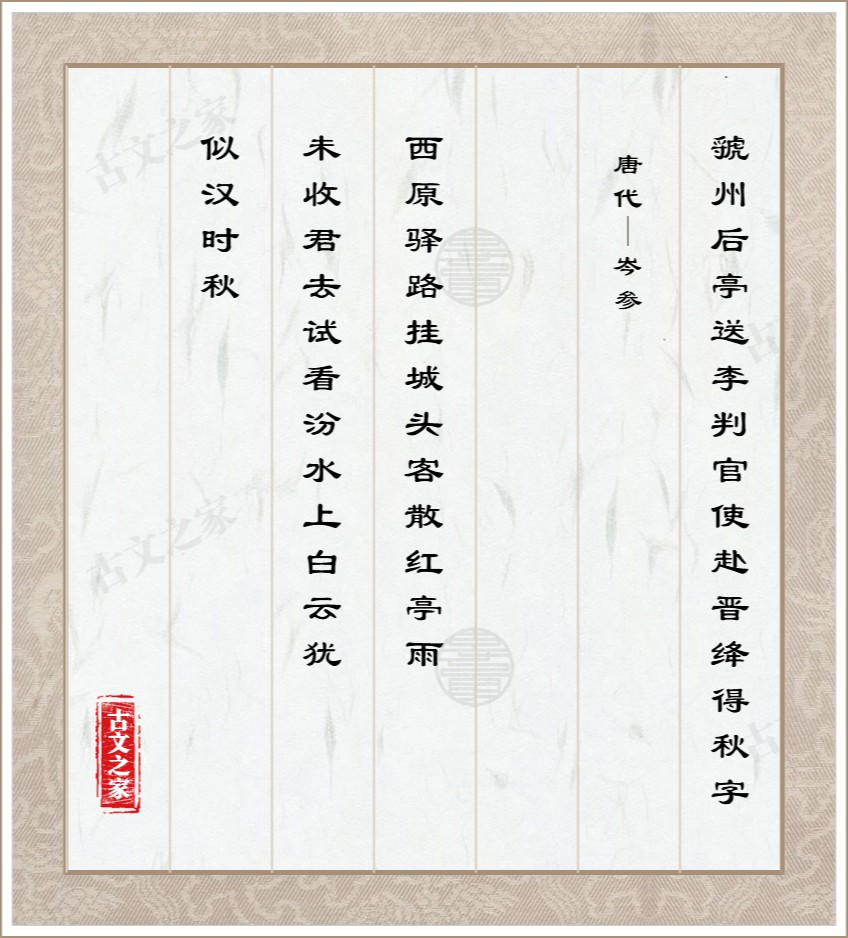 虢州后亭送李判官使赴晋绛得秋字
唐代—岑参
西原驿路挂城头客散红亭雨
未收君去试看汾水上白云犹
似汉时秋
古文之家
古文之家
古文之家
古
古